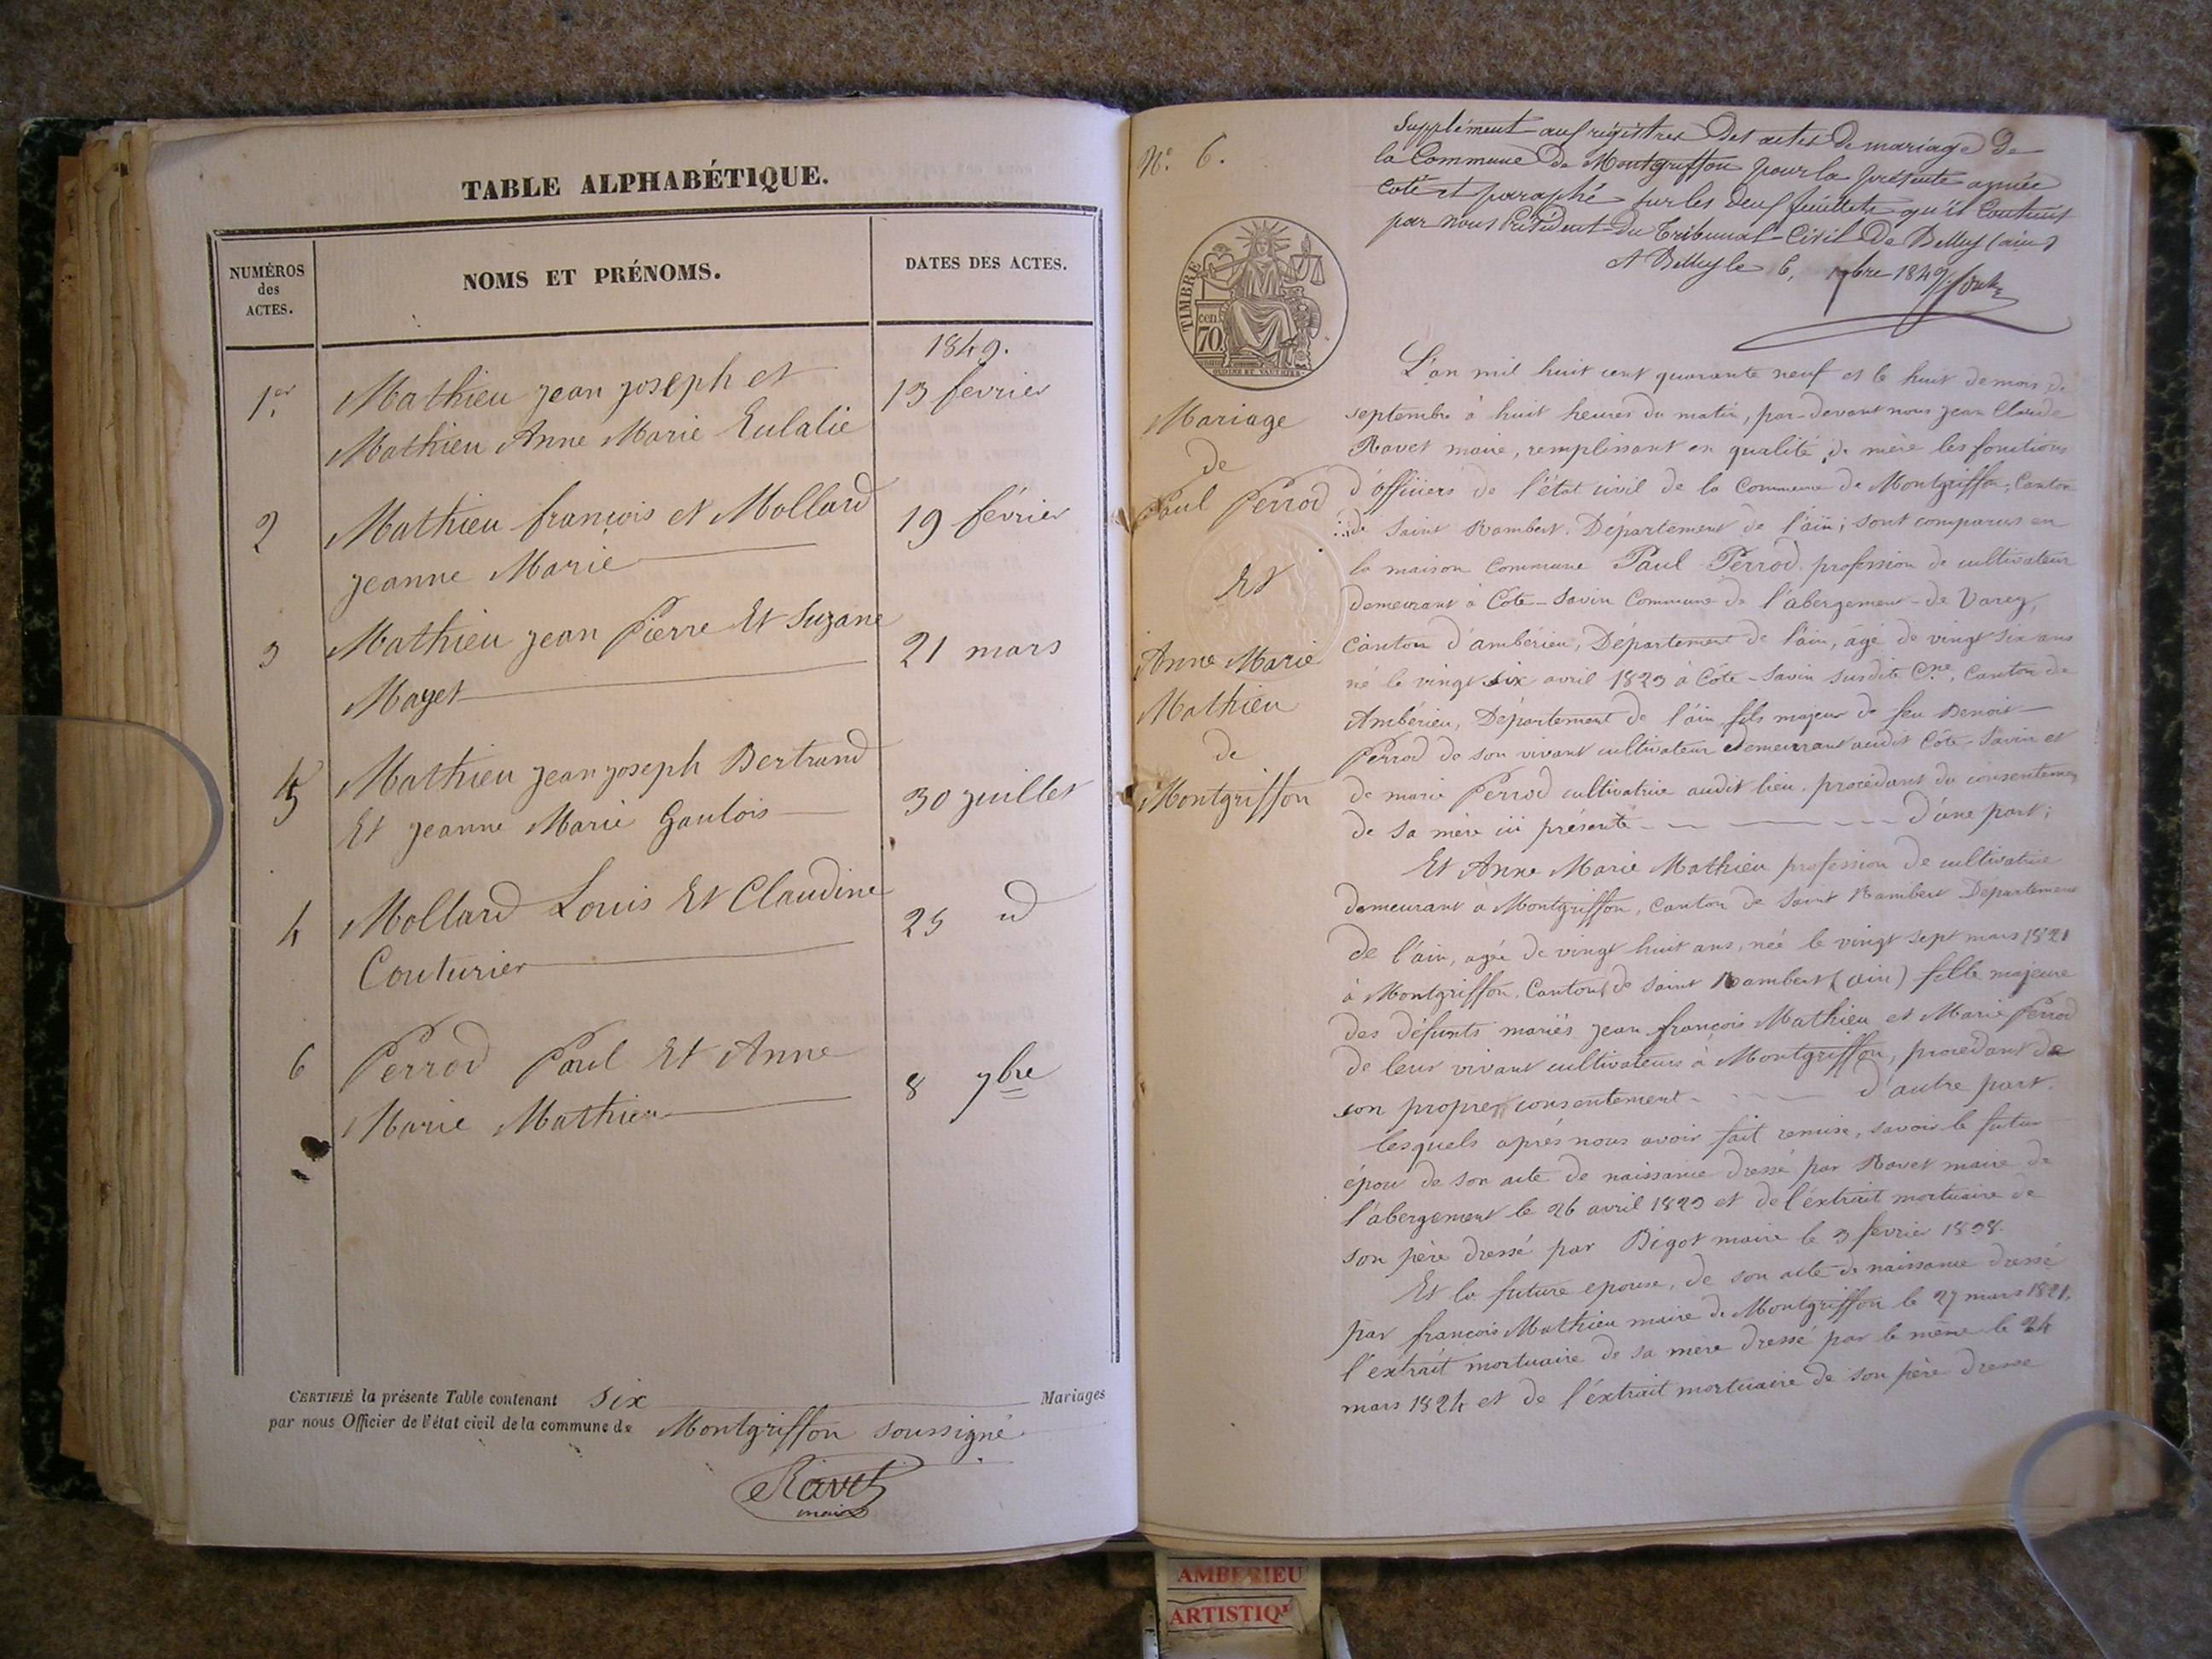 TABLE ALPHABÉTIQUE.
NUMÉROS
des
ACTES.
NOMS ET PRÉNOMS.
DATES DES ACTES.
1849.
1er Mathieu jean joseph et 13 fevrier
Mathieu Anne Marie Eulalie
2 Mathieu françois et Mollard 19 février
jeanne Marie
3 Mathieu jean Pierre Et Suzane 21 mars
Mayet
5 Mathieu jean joseph Bertrand 30 juillet
Et jeanne Marie Gaulois
4 Mollard Louis Et Claudine 25 id
Couturier
6 Perrod Paul Et Anne 8 7bre
Marie Mathieu
CERTIFIÉ la présente Table contenant six Mariages
par nous Officier de l'état civil de la commune de Montgriffon soussigné
Ravet
maire
N° 6.
Supplément aux régistres des actes de mariage de
la Commune de Montgriffon pour la présente année
coté et paraphé sur les deux feuillets qu'il contient
par nous Président du Tribunal Civil de Belley (ain)
A Belley le 6, 7bre 1849
TIMBRE
70 cen
Mariage
de
Paul Perrod
Et
Anne Marie
Mathieu
de
Montgriffon
L'an mil huit cent quarante neuf et le huit de mois de
septembre à huit heures du matin, par-devant nous jean Claude
Ravet maire, remplissant en qualité de mère les fonctions
d'officiers de l'état civil de la Commune de Montgriffon, Canton
de Saint Rambert. Département de l'ain; sont comparus en
la maison Commune Paul Perrod profession de cultivateur
demeurant à Côte-Savin Commune de l'abergement-de Varey,
Canton d'ambérieu, Département de l'ain, âgé de vingt six ans
né le vingt six avril 1823 à Côte-Savin susdite Cne, Canton de
Ambérieu, Département de l'ain, fils majeur de feu Benoit
Perrod de son vivant cultivateur demeurant audit Côte-Savin et
de marie Perrod cultivatrice audit lieu, procédant du consentement
de sa mère ici présente d'une part;
Et Anne Marie Mathieu profession de cultivatrice
demeurant à Montgriffon, Canton de Saint Rambert Département
de l'ain, agée de vingt huit ans, née le vingt sept mars 1821
à Montgriffon, Canton de Saint Rambert (ain) fille majeure
des défunts mariés jean françois Mathieu et Marie Perrod
de leur vivant cultivateurs à Montgriffon, procédant de
son propre consentement d'autre part.
lesquels après nous avoir fait remise, savoir le futur
épou de son acte de naissance dressé par Ravet maire de
l'abergement le 26 avril 1823 et de l'extrait mortuaire de
son père dressé par Bigot maire le 3 fevrier 1838.
Et la future epouse, de son acte de naissance dressé
par françois Mathieu maire de Montgriffon le 27 mars 1821,
l'extrait mortuaire de sa mère dressé par le même le 24
mars 1824 et de l'éxtrait mortuaire de son père dressé
AMBERIEU
ARTISTIQU